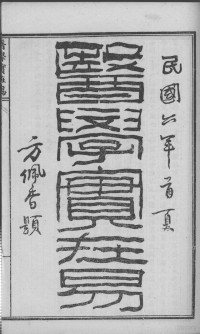 民國六年首夏
醫學實在易
方佩香題